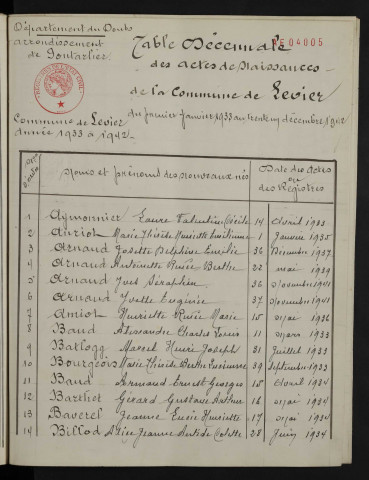 Département du Doubs
arrondissement
de Pontarlier
Commune de Levier
Année 1933 à 1942
504005
Table Décennale
des actes de Naissances
de la Commune de Levier
du premier janvier 1933 au trente un décembre 1942
Noms et prénoms des nouveaux nés
Date des Actes
ou
des Registres
1 Aymonnier Laure Valentine Cécile 14 Avril 1933
2 Auriol Marie Thérèse Henriette Emilienne 1 Janvier 1935
3 Arnaud Josette Delphine Emilie 36 Décembre 1937
4 Arnaud Antoinette Renée Berthe 22 mai 1939
5 Arnaud Yves Séraphin 36 Novembre 1941
6 Arnaud Yvette Eugénie 37 Novembre 1941
7 Amiot Henriette Renée Marie 15 mai 1936
8 Baud Alexandre Charles Louis 11 mars 1933
9 Marcel Henri Joseph 31 Juillet 1933
10 Bourgeois Marie Thérèse Berthe Lucienne 39 Septembre 1933
11 Baud Armand Ernest Georges 15 Avril 1934
12 Barthet Gérard Gustave Arthur 16 mai 1934
13 Baverel Jeanne Lucie Henriette 17 mai 1934
14 Billod Alice Jeanne Colette 28 Juin 1934